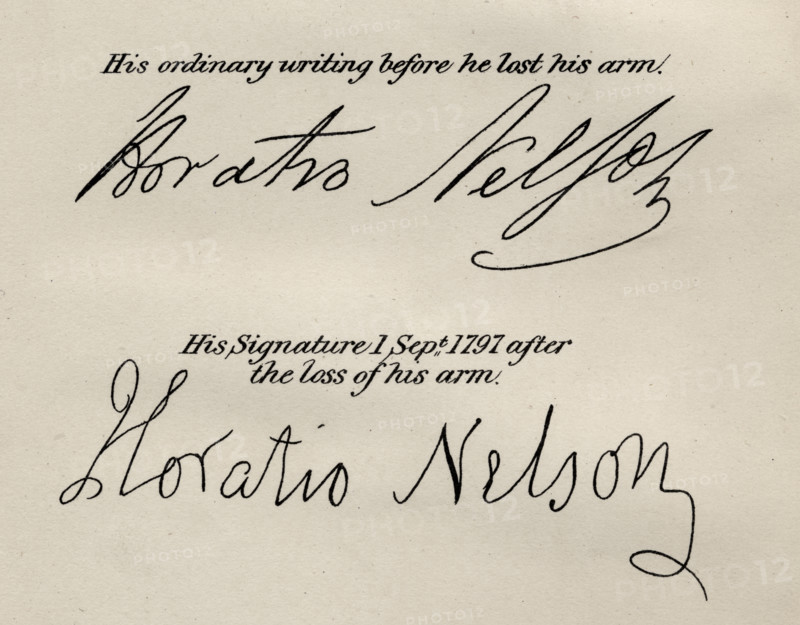 His ordinary writing before he lost his arm.
Horatio Nelson
His Signature 1 Sept. 1797 after
the loss of his arm.
Horatio Nelson
PHOTO12